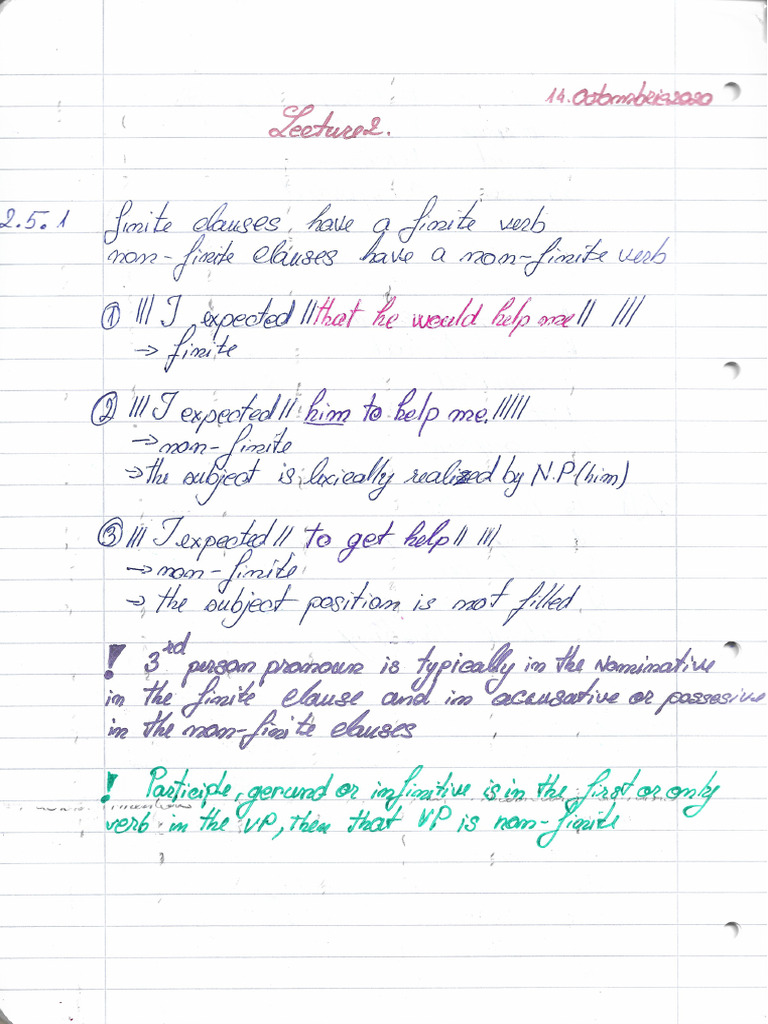 14. Octombrie 2020
Lecture 2.
2.5.1 finite clauses have a finite verb
non-finite clauses have a non-finite verb
① ||| I expected || that he would help me || |||
→ finite
② ||| I expected || him to help me. |||||
→ non-finite
→ the subject is lexically realized by N.P (him)
③ ||| I expected || to get help || |||
→ non-finite
→ the subject position is not filled
! 3rd person pronoun is typically in the Nominative
in the finite clause and in acusative or possesive
in the non-finite clauses
! Participle, gerund or infinitive is in the first or only
verb in the VP, then that VP is non-finite